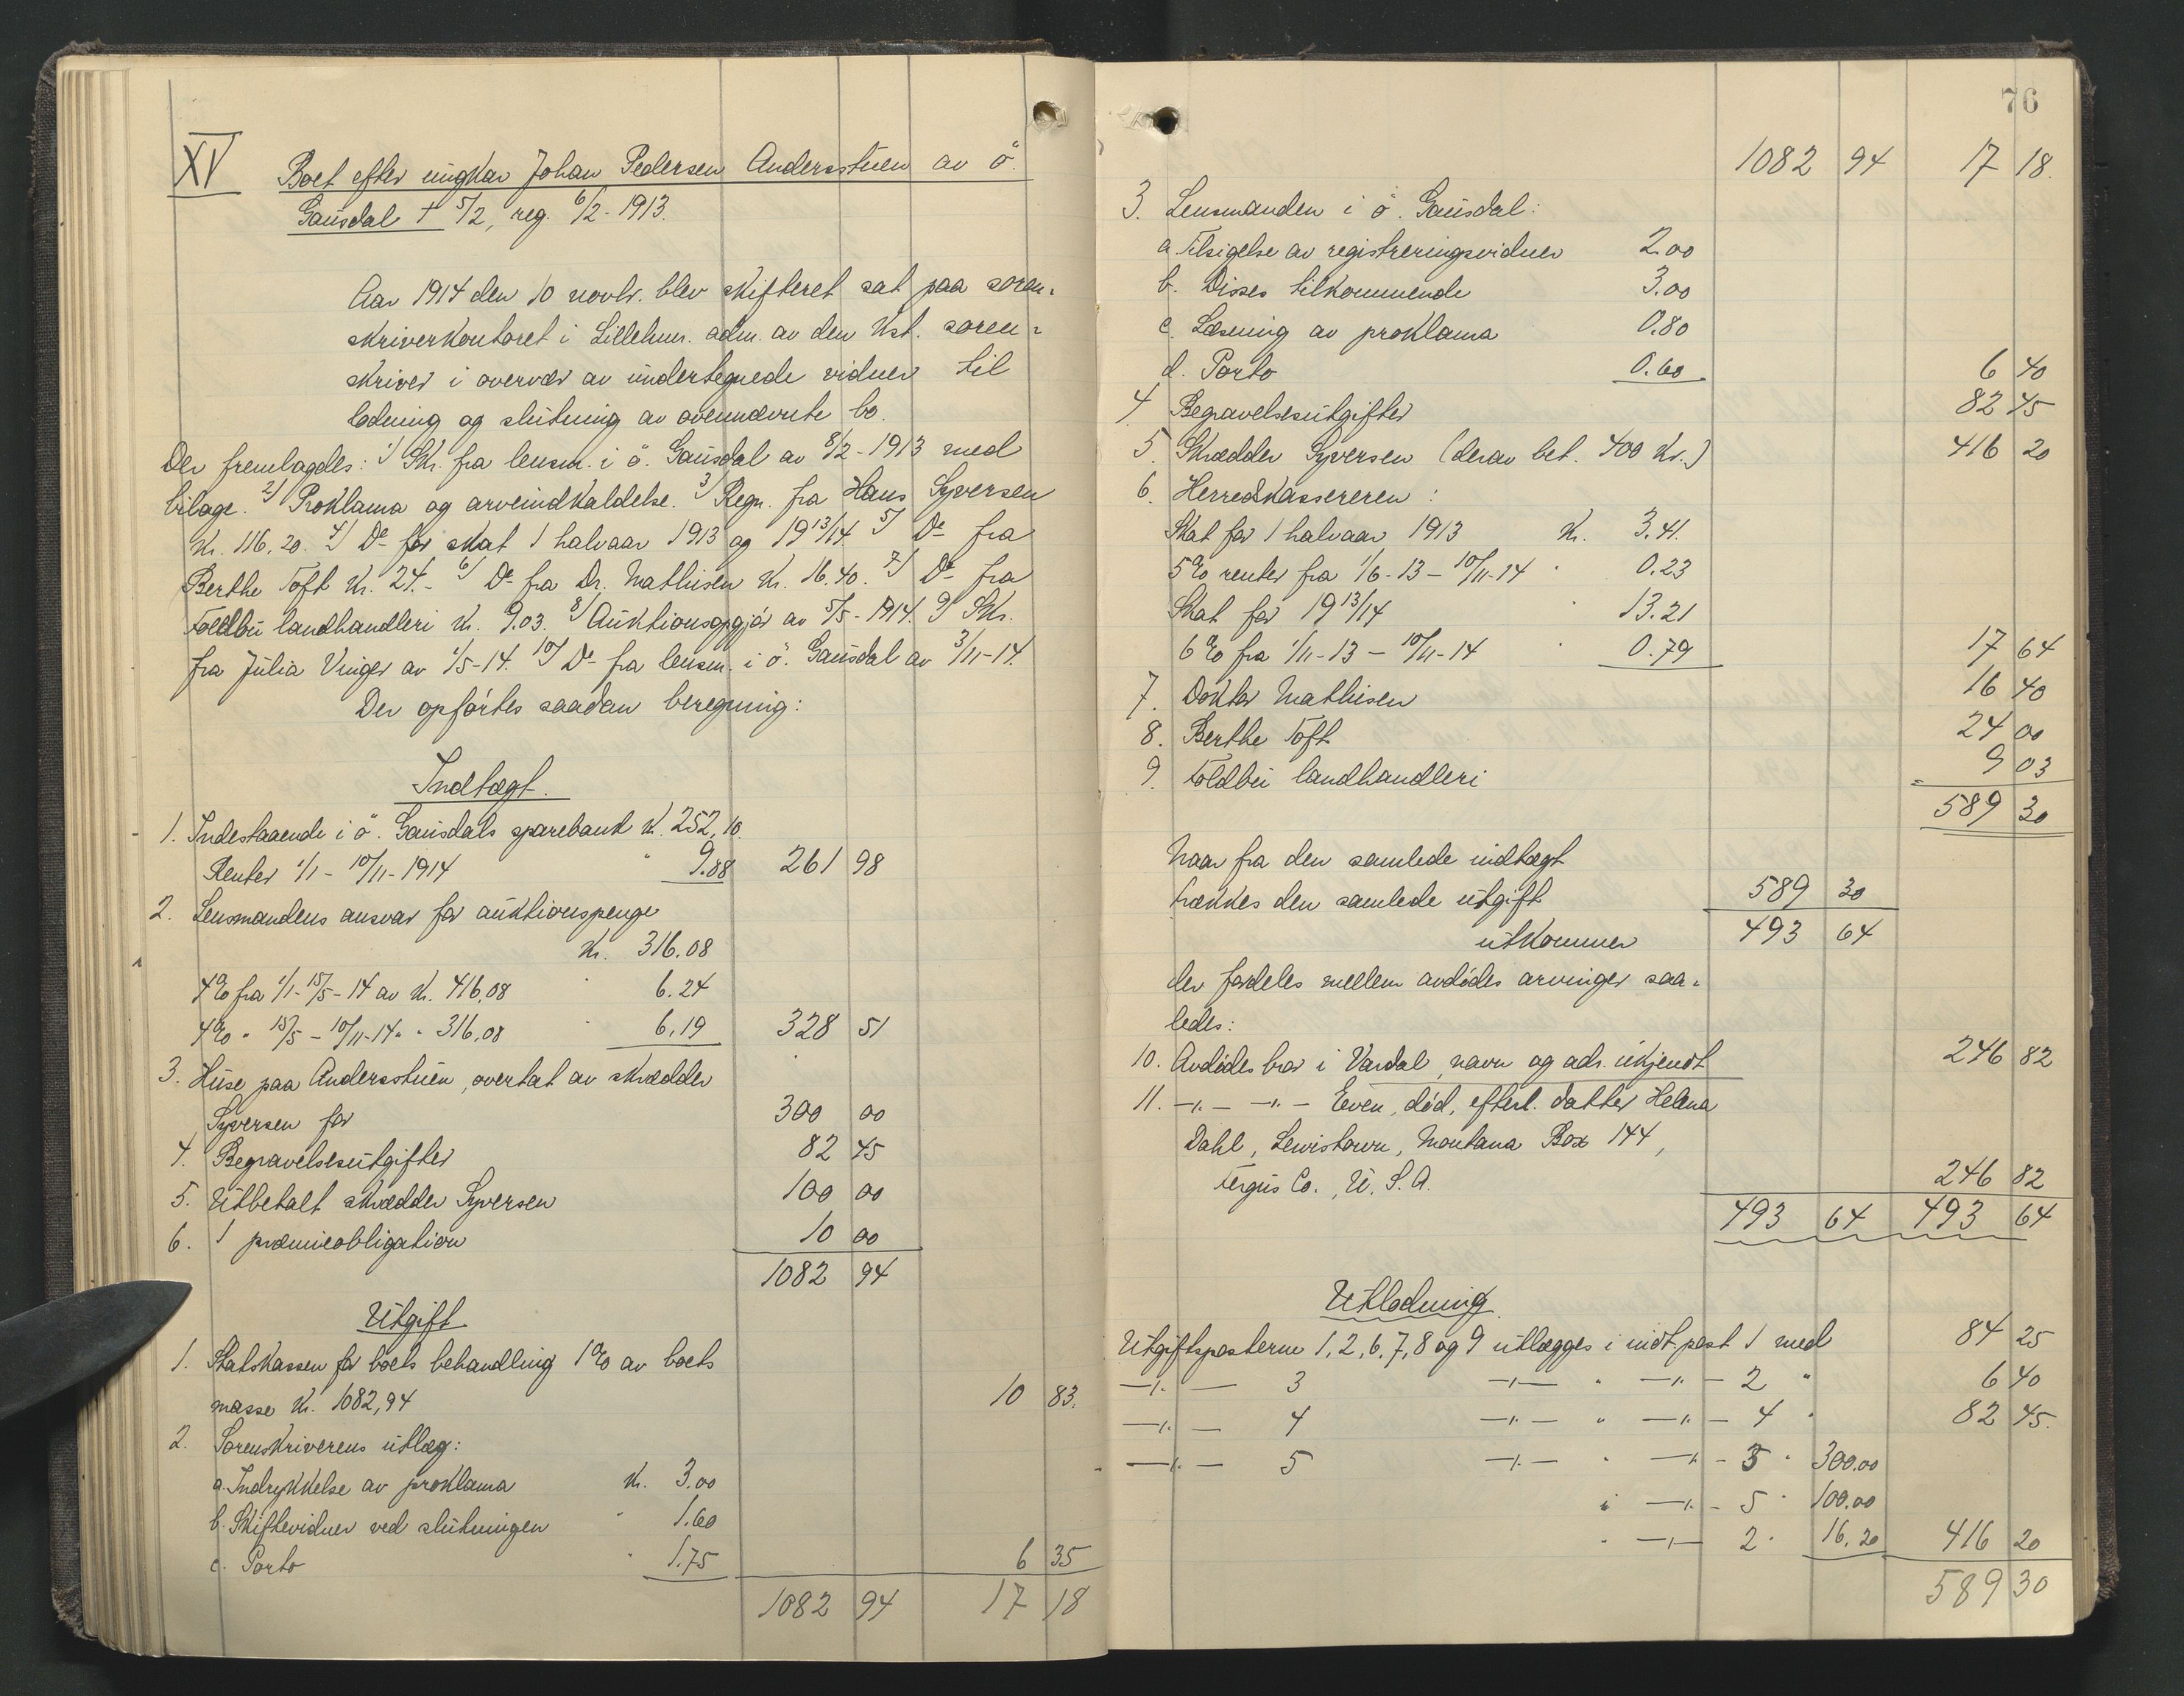 XV Boet efter ungkar Johan Pedersen Andersstuen av ö.
Gausdal † 5/2, reg. 6/2-1913.
Aar 1914 den 10 novbr. blev skifteret sat paa soren-
skriverkontoret i Lillehmr. adm. av den kst. soren-
skriver i overvær av undertegnede vidner til
lodning og slutning av ovennævnte bo.
Der fremlagdes: 1) Skr. fra lensm. i ö. Gausdal av 8/2-1913 med
bilage. 2) Proklama og arveindkaldelse. 3) Regn. fra Hans Syversen
kr. 116,20. 4) Do for skat 1 halvaar 1913 og 1913/14. 5) Do fra
Berthe Toft kr. 24.- 6) Do fra Dr. Mathisen kr. 16.40. 7) Do fra
Foldbu landhandleri kr. 9.03. 8) Auktionsopgjör av 5/5-1914. 9) Skr.
fra Julia Vinger av 1/5-14. 10) Do fra lensm. i ö. Gausdal av 3/11-14.
Der opførtes saadan beregning:
Indtægt.
1. Indestaaende i ö. Gausdals sparebank kr. 252,10
Renter 1/1-10/11-1914 " 9.88 261 98
2. Lensmandens ansvar for auktionspenge
kr. 316.08
4% fra 1/1-15/5-14 av kr. 416,08 " 6.24
4% " 15/5-10/11-14 " " 316,08 " 6,19 328 51
3. Huse paa Andersstuen, overtat av skrædder
Syversen for 300 00
4. Begravelsesutgifter 82 45
5. Utbetalt skrædder Syversen 100 00
6. 1 præmieobligation 10 00
1082 94
Utgift
1. Statskassen for boets behandling 1% av boets
masse kr. 1082,94 10 83.
2. Sorenskriverens utlæg:
a. Indrykkelse av proklama kr. 3.00
b. Skiftevidner ved slutningen " 1.60
c. Porto " 1.75 6 35
1082 94 17 18
76
1082 94 17 18.
3. Lensmanden i ö. Gausdal:
a. Tilsigelse av registreringsvidner 2.00
b. Disses tilkommende 3.00
c. Læsning av proklama 0.80
d. Porto 0.60 6 40
4. Begravelsesutgifter 82 45
5. Skrædder Syversen (derav bet. 400 kr.) 416 20
6. Herredskassereren:
Skat for 1 halvaar 1913 kr. 3.41.
5% renter fra 1/6-13-10/11-14 " 0.23
Skat for 1913/14 " 13.21
6% fra 1/11-13-10/11-14 " 0.79 17 64
7. Doktor Mathisen 16 40
8. Berthe Toft 24 00
9. Foldbu landhandleri 9 03
589 30
Naar fra den samlede indtægt
trækkes den samlede utgift 589 30
utkommer 493 64
der fordeles mellem avdødes arvinger saa-
ledes:
10. Avdødes bror i Vardal, navn og adr. ukjendt 246 82
11. -"- -"- Even, død, efterl. datter Helena
Dahl, Lewistown, Montana Box 144,
Fergus Co., U.S.A. 246 82
493 64 493 64
Utlodning
Utgiftsposterne 1, 2, 6, 7, 8 og 9 utlægges i indt.post 1 med 84 25
-"- 3 -"- " -"- 2 " 6 40
-"- 4 -"- " -"- 4 " 82 45.
-"- 5 -"- " -"- 3 " 300.00
i -"- 5 " 100.00
" -"- 2 " 16.20 416 20
589 30